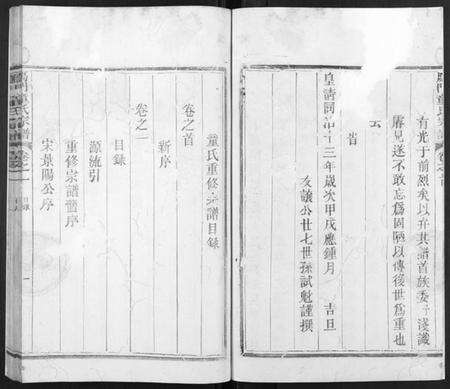 有光于前烈矣以弁其譜首族委予淺識
屢見遂不敢忘為固陋以傳後世為重也
云
首
皇清同治十三年歲次甲戌應鍾月 吉旦
友讓公廿七世孫試魁謹撰
童氏重修宗譜目錄
卷之首
新序
卷之一
目錄
源流引
重修宗譜舊序
宋景陽公序